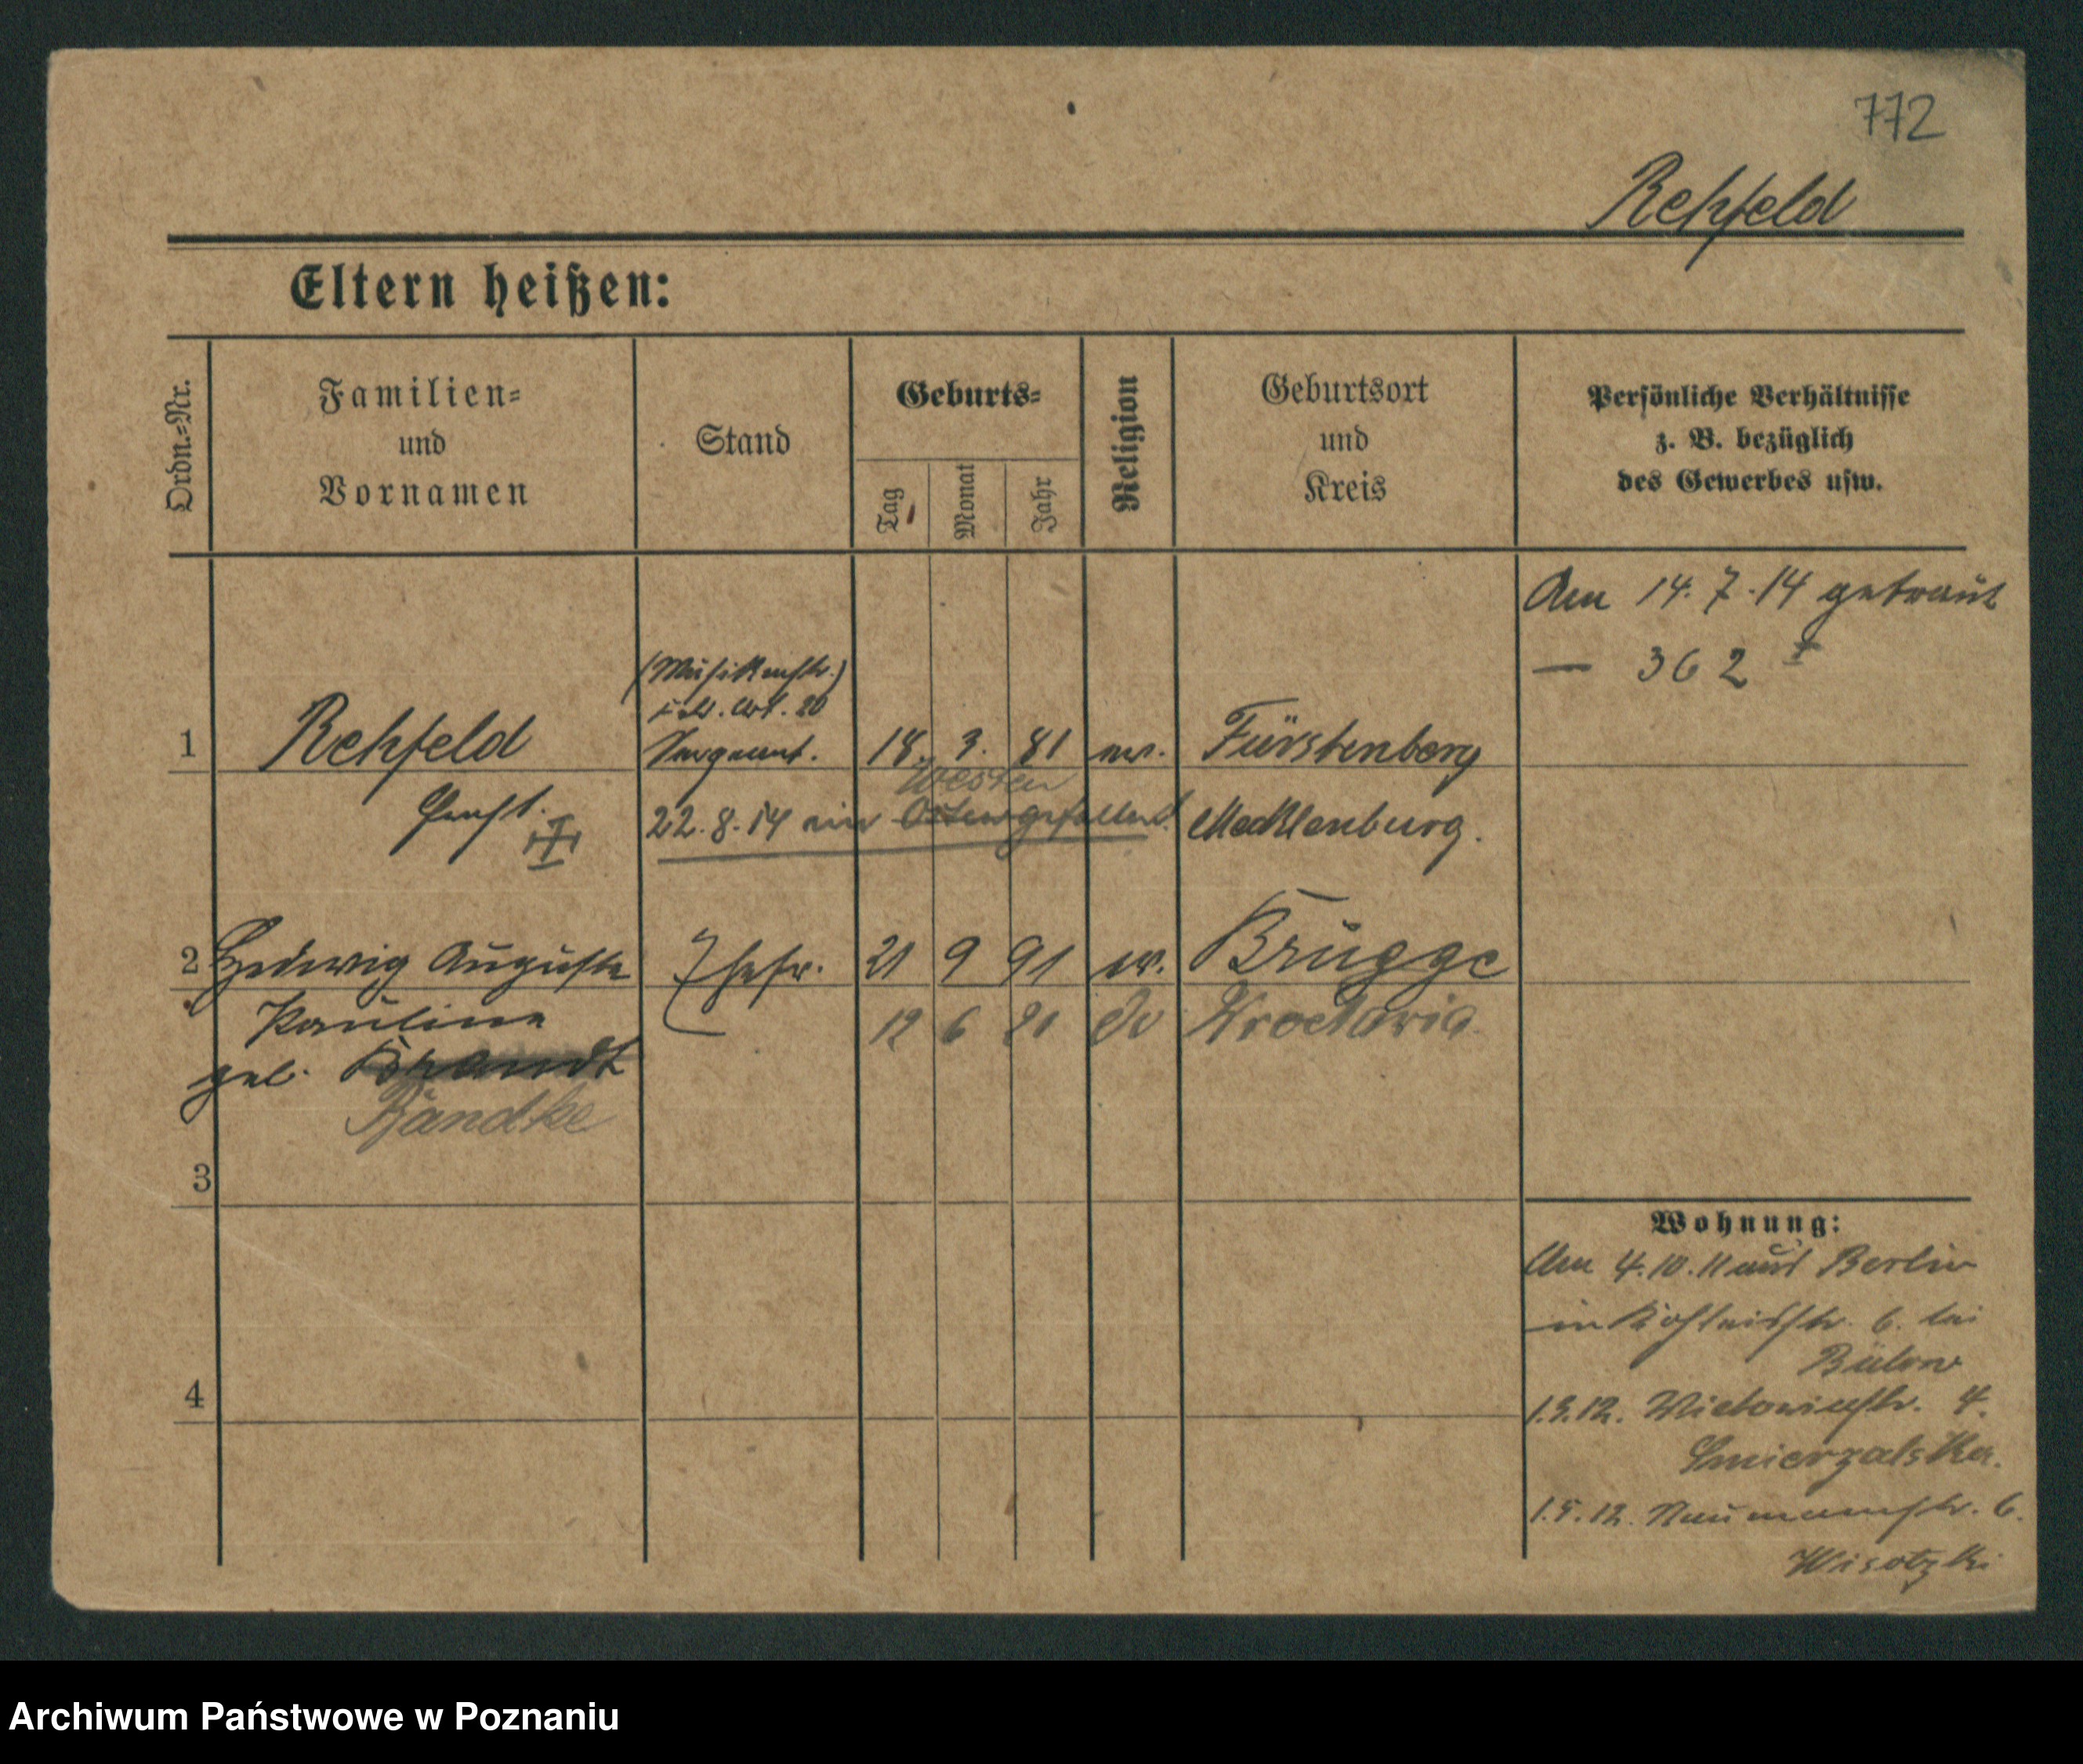 772
Rehfeld
Eltern heißen:
Ordn.-Nr.
Familien-
und
Vornamen
Stand
Geburts-
Tag
Monat
Jahr
Religion
Geburtsort
und
Kreis
Persönliche Verhältnisse
z. B. bezüglich
des Gewerbes usw.
Am 14.7.14 getraut
— 362 I
1 Rehfeld
Ernst.
Art. 20
Sergeant. 18. 3. 81 ev. Fürstenberg
Westen
22.8.14 im Osten gefallen. Mecklenburg.
2 Hedwig Auguste Ehefr. 21 9 91 ev. Brügge
Pauline 12 6 21
geb. Brandt
Bandke
3
4
Wohnung:
Am 4.10.11 aus Berlin
in 6. bei
Bülow
1.3.12. 4.
Smierzalska.
1.5.12. Naumannstr. 6.
Wisotzki
Archiwum Państwowe w Poznaniu